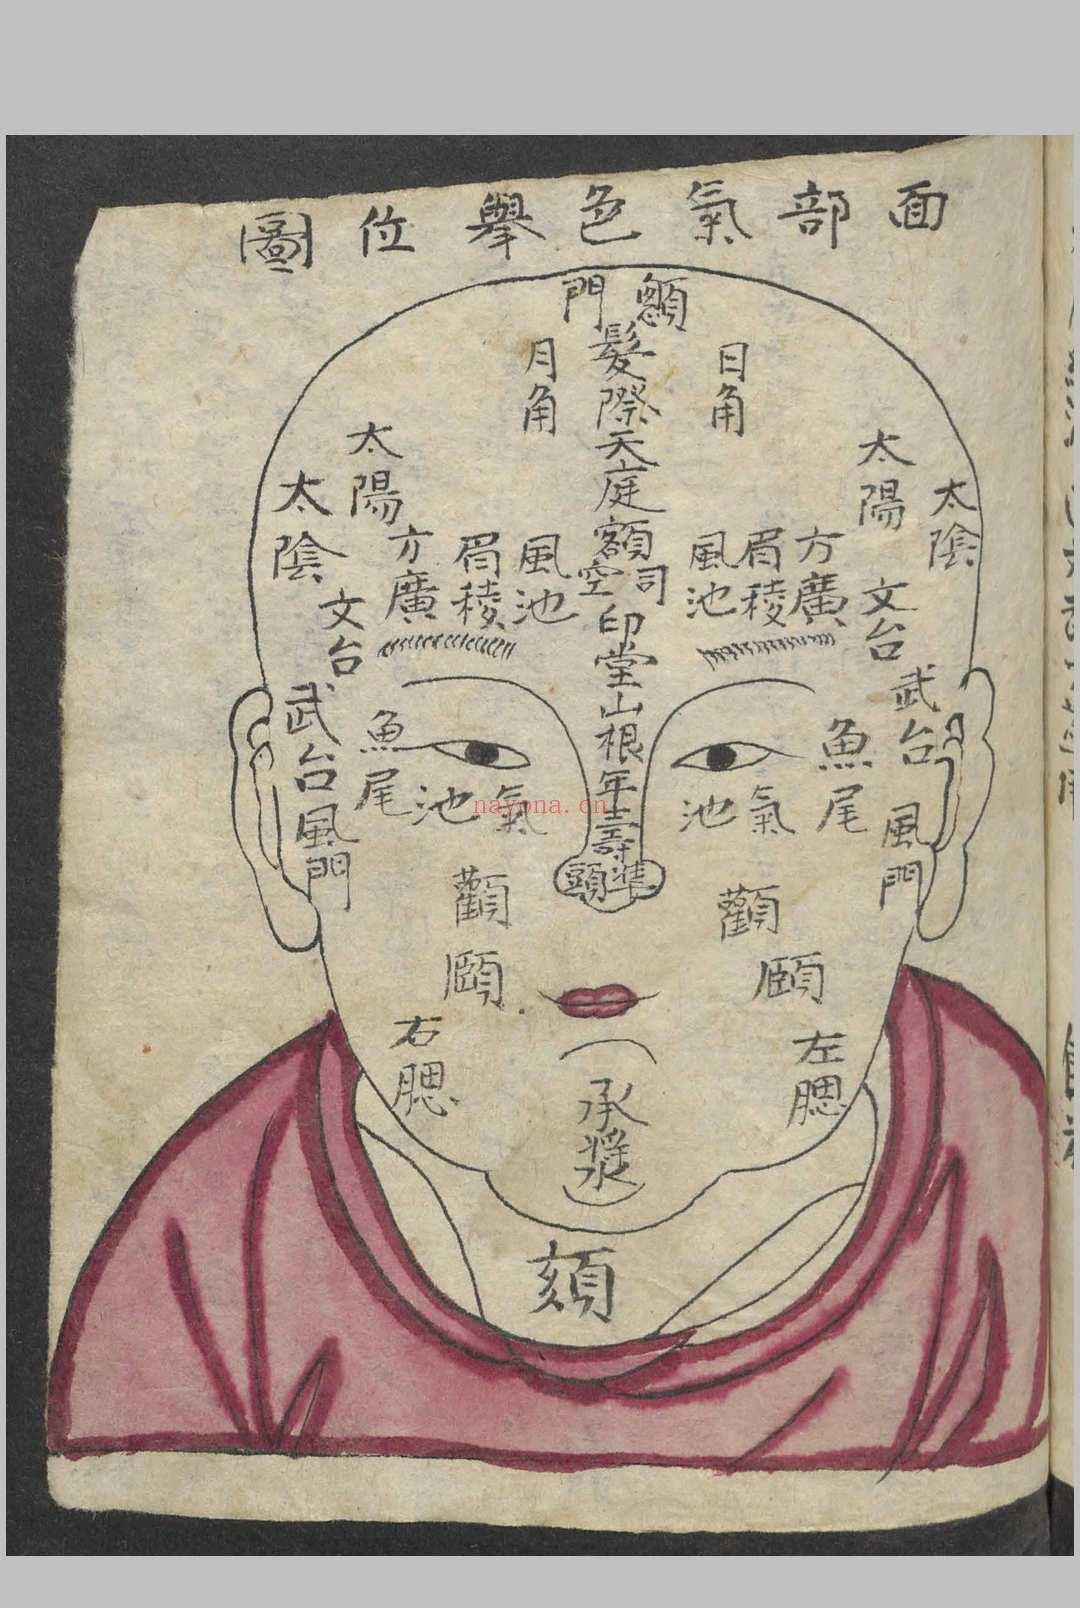 面部氣色舉位圖
顖門
髮際天庭額司空印堂山根年壽準頭
日角
月角
太陽
太陰
方廣
眉稜
風池
文台
武台
魚尾
氣池
風門
顴
頤
左腮
太陽
太陰
方廣
眉稜
風池
文台
武台
魚尾
氣池
風門
顴
頤
右腮
承漿
頦
nayona.cn